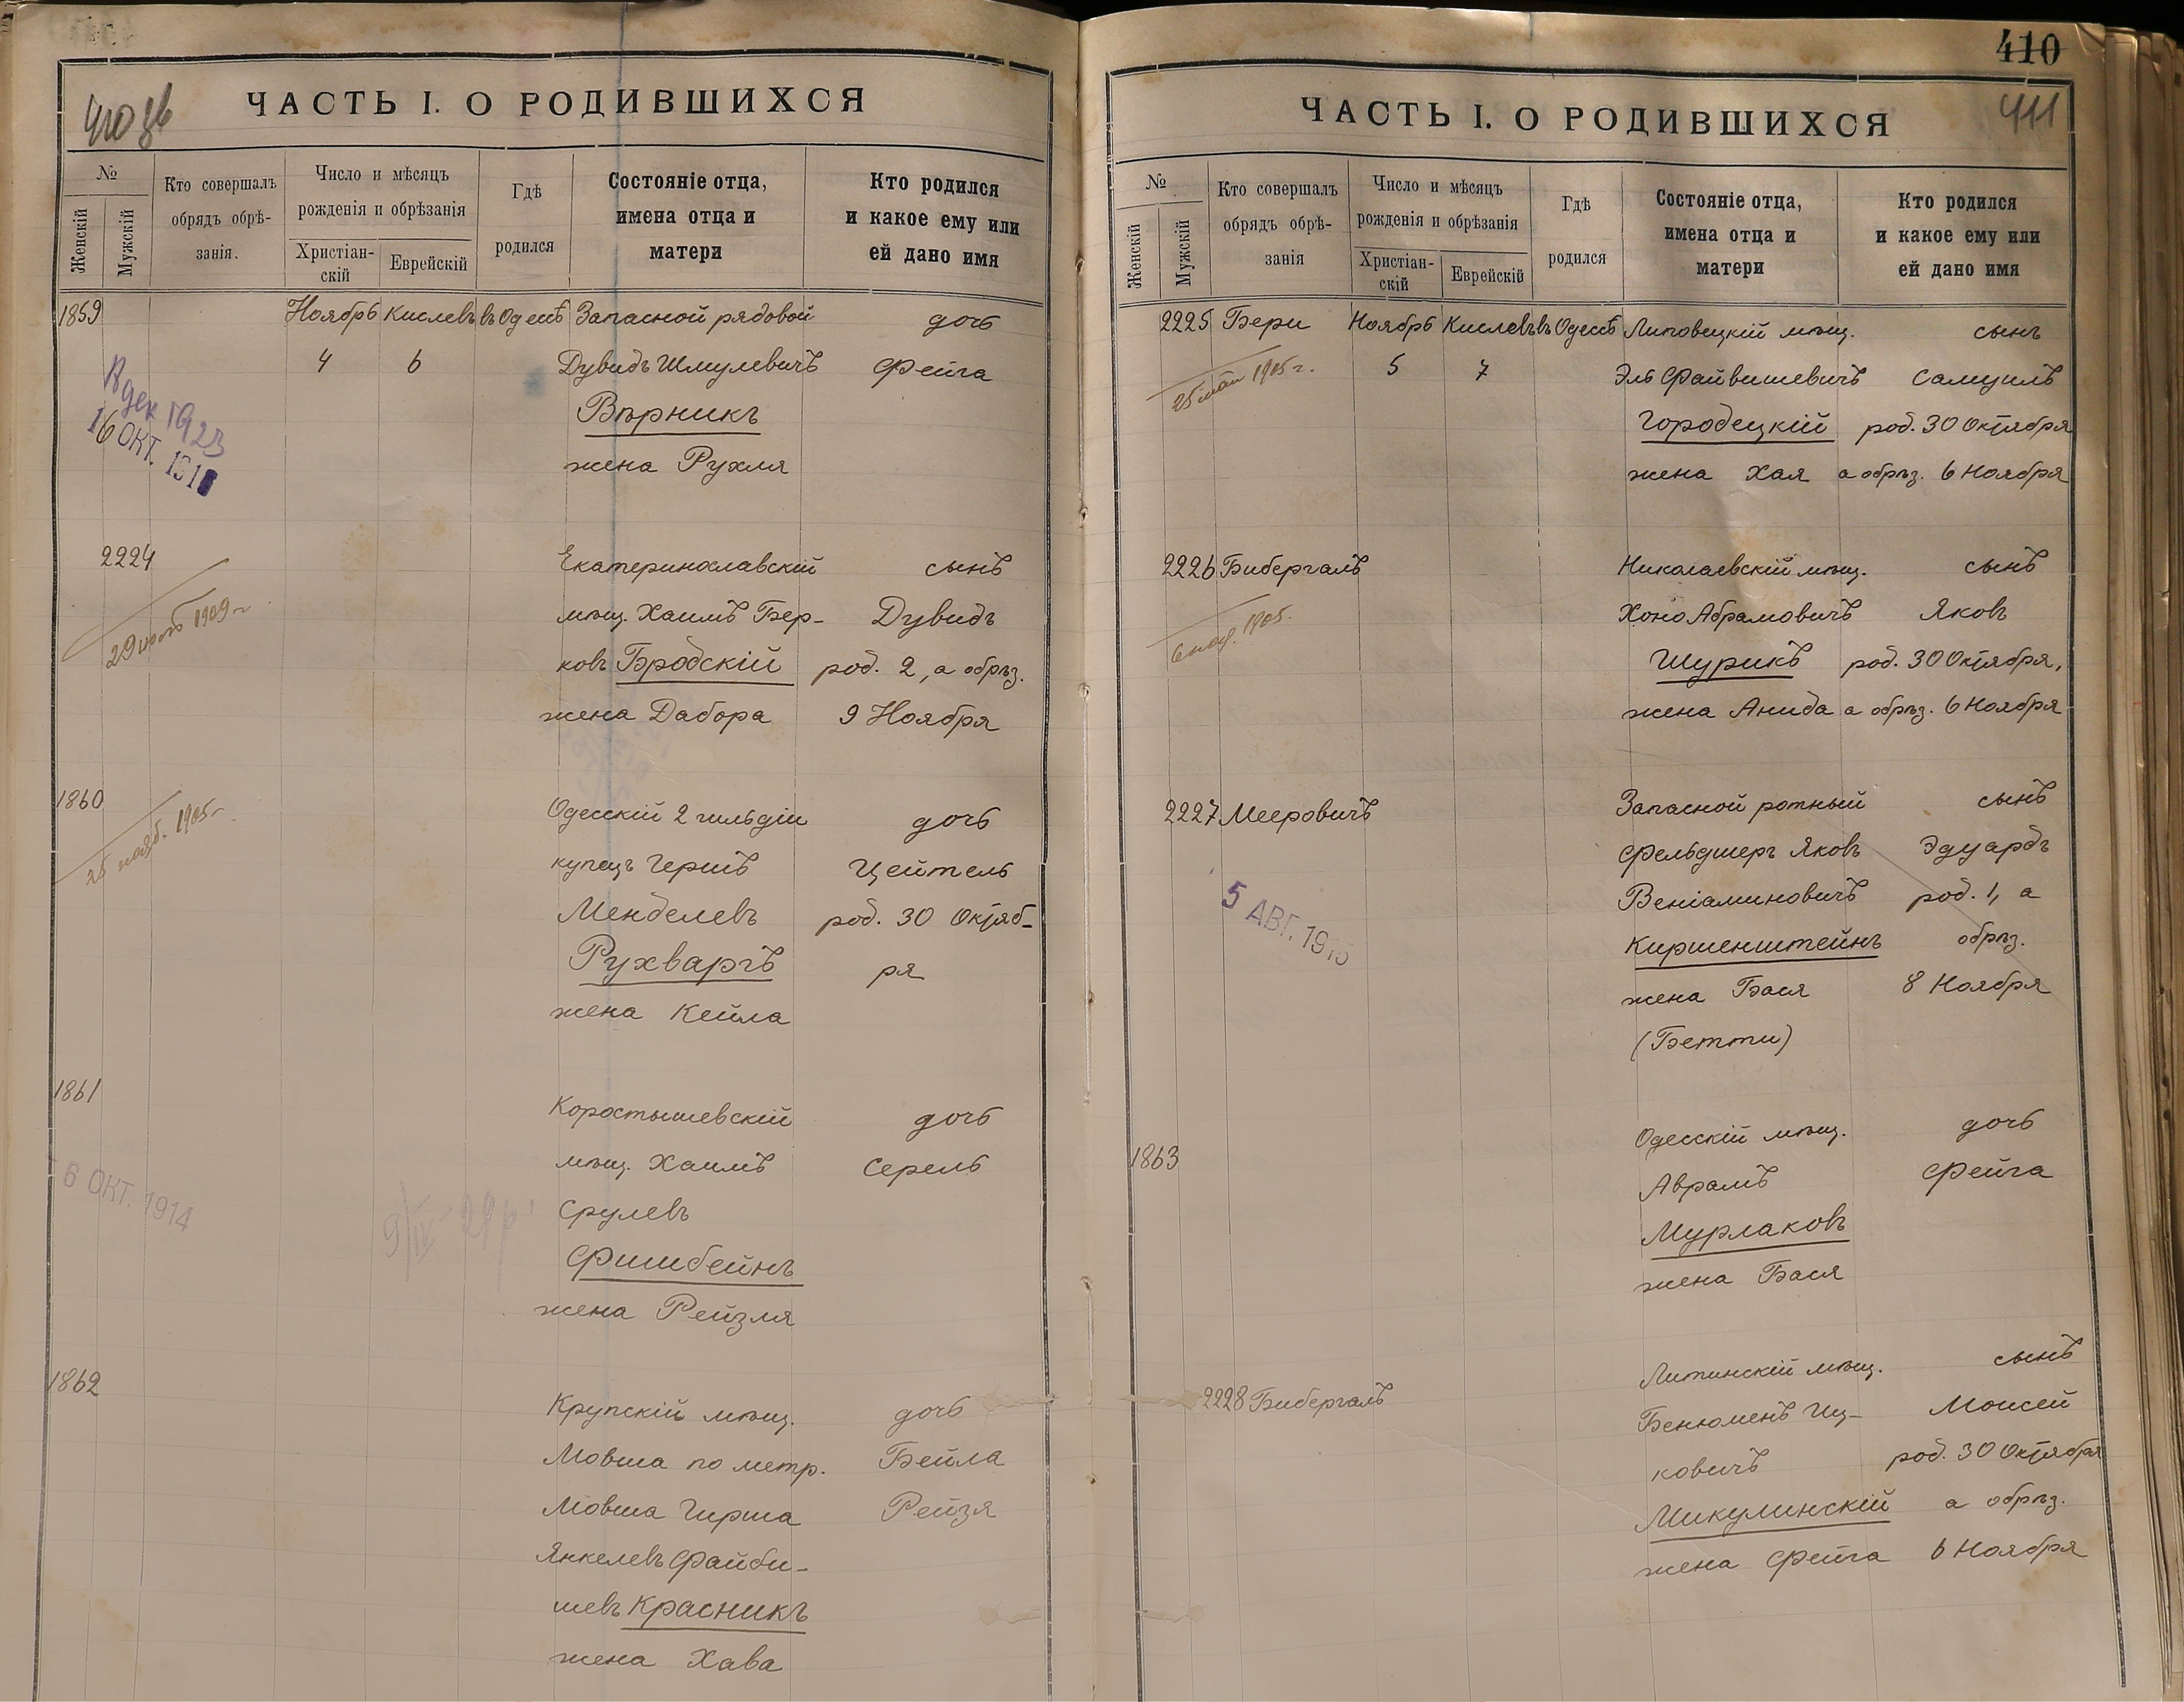 410 об
ЧАСТЬ I. О РОДИВШИХСЯ
№
Женскій
Мужскій
Кто совершалъ
обрядъ обрѣ-
занія.
Число и мѣсяцъ
рожденія и обрѣзанія
Христіан-
скій
Еврейскій
Гдѣ
родился
Состояніе отца,
имена отца и
матери
Кто родился
и какое ему или
ей дано имя
1859 Ноябрь Кислевъ въ Одессѣ Запасной рядовой дочь
4 6 Дувидъ Шмулевичъ Фейга
Вѣрникъ
жена Рухля
дек 1923
16 ОКТ. 191
2224 Екатеринославскій сынъ
мѣщ. Хаимъ Бер- Дувидъ
ковъ Бродскій род. 2, а обрѣз.
жена Дабора 9 Ноября
29 1909 г
1860 Одесскій 2 гильдіи дочь
купецъ Гершъ Цейтель
Менделевъ род. 30 Октяб-
Рухваргъ ря
жена Кейла
25 нояб. 1905 г
1861 Коростышевскій дочь
мѣщ. Хаимъ Серель
Срулевъ
Фишбейнъ
жена Рейзля
6 ОКТ. 1914
9/IV 29 г
1862 Крупскій мѣщ. дочь
Мовша по метр. Бейла
Мовша Гирша Рейзя
Янкелевъ Файби-
шевъ Красникъ
жена Хава
410
411
ЧАСТЬ I. О РОДИВШИХСЯ
№
Женскій
Мужскій
Кто совершалъ
обрядъ обрѣ-
занія
Число и мѣсяцъ
рожденія и обрѣзанія
Христіан-
скій
Еврейскій
Гдѣ
родился
Состояніе отца,
имена отца и
матери
Кто родился
и какое ему или
ей дано имя
2225 Бери Ноябрь Кислевъ въ Одессѣ Липовецкій мѣщ. сынъ
5 7 Эль Файвишевичъ Самуилъ
Городецкій род. 30 Октября
жена Хая а обрѣз. 6 Ноября
25 мая 1905 г.
2226 Бибергалъ Николаевскій мѣщ. сынъ
Хоно Абрамовичъ Яковъ
Шурикъ род. 30 Октября,
жена Анида а обрѣз. 6 Ноября
1905.
2227 Мееровичъ Запасной ротный сынъ
фельдшеръ Яковъ Эдуардъ
Веніаминовичъ род. 1, а
Киршенштейнъ обрѣз.
жена Бася 8 Ноября
(Бетти)
5 АВГ. 1915
1863 Одесскій мѣщ. дочь
Аврамъ Фейга
Мурлаковъ
жена Бася
2228 Бибергалъ Литинскій мѣщ. сынъ
Бенюменъ Иц- Моисей
ковичъ род. 30 Октября
Микулинскій а обрѣз.
жена Фейга 6 Ноября